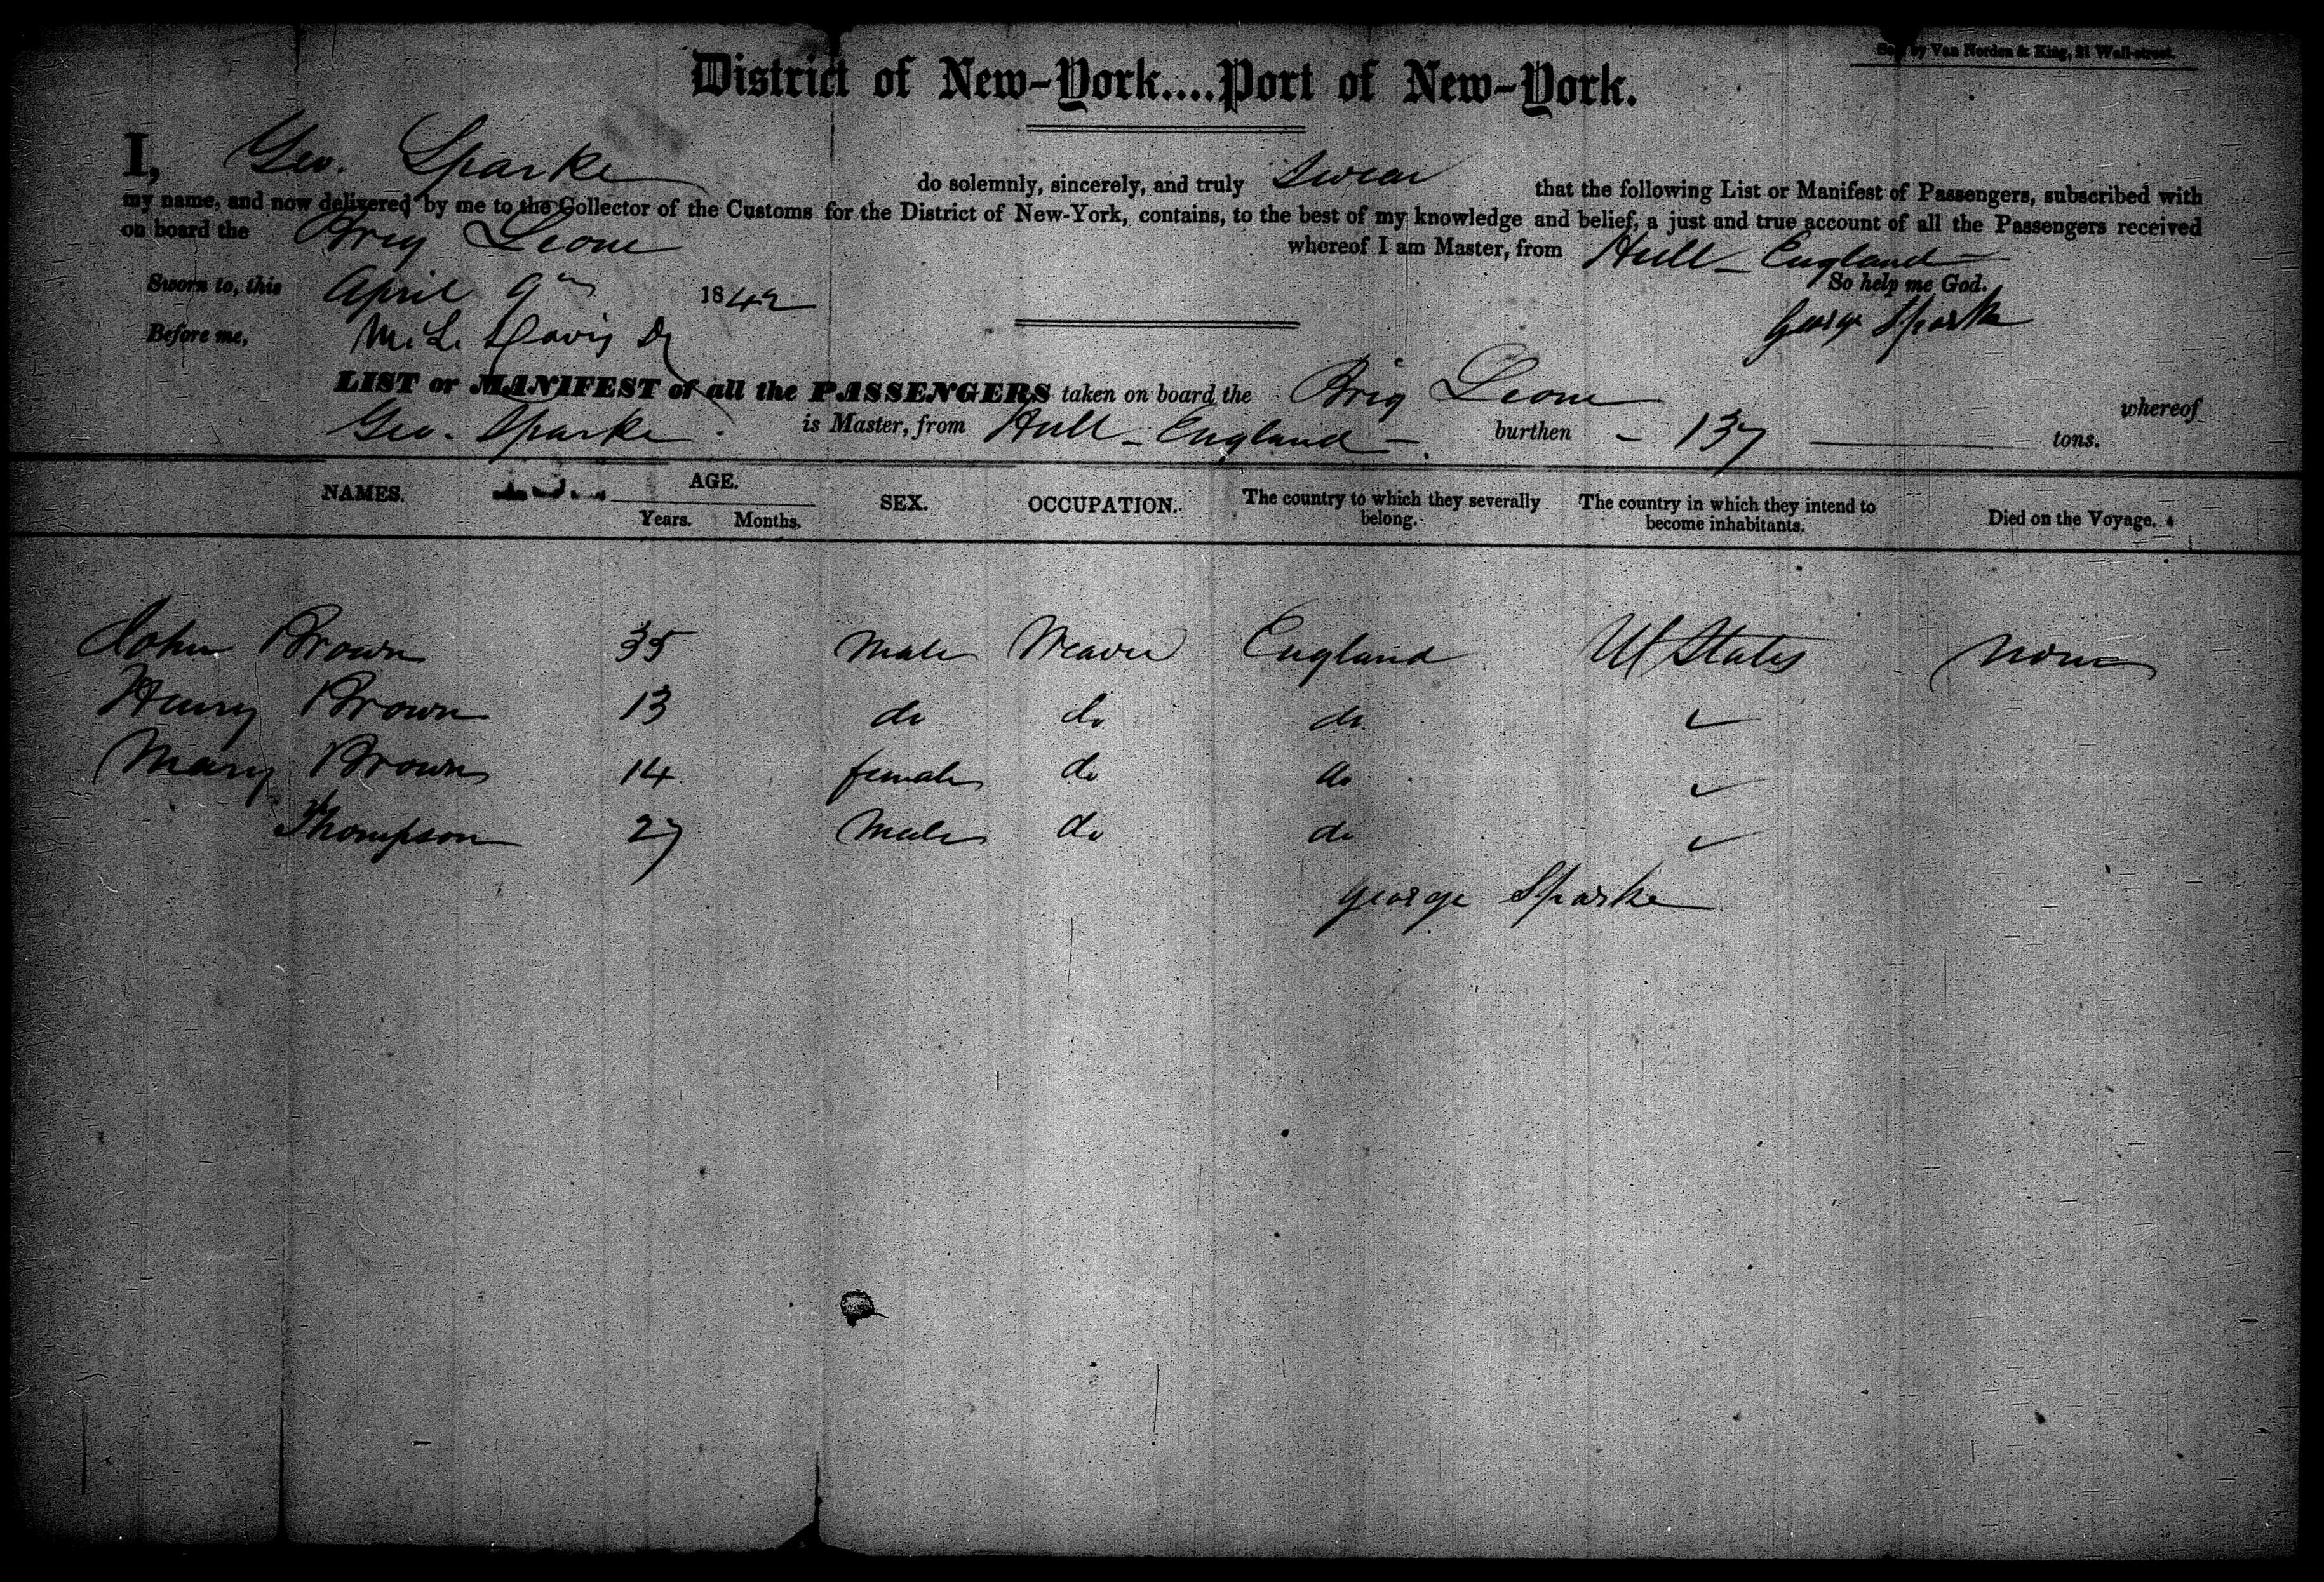 Sold by Van Norden & King, 21 Wall-street.
District of New-York....Port of New-York.
I, Geo. Sparke do solemnly, sincerely, and truly Swear that the following List or Manifest of Passengers, subscribed with
my name, and now delivered by me to the Collector of the Customs for the District of New-York, contains, to the best of my knowledge and belief, a just and true account of all the Passengers received
on board the Brig Leone whereof I am Master, from Hull - England
So help me God.
Sworn to, this April 9th 1842
George Sparke
Before me, Davis
LIST or MANIFEST of all the PASSENGERS taken on board the Brig Leone whereof
Geo. Sparke is Master, from Hull - England - burthen - 137 tons.
NAMES. AGE. Years. Months. SEX. OCCUPATION. The country to which they severally belong. The country in which they intend to become inhabitants. Died on the Voyage.
John Brown 35 Male Weaver England U States none
Henry Brown 13 do do do ✓
Mary Brown 14 female do do ✓
Thompson 27 Male do do ✓
George Sparke